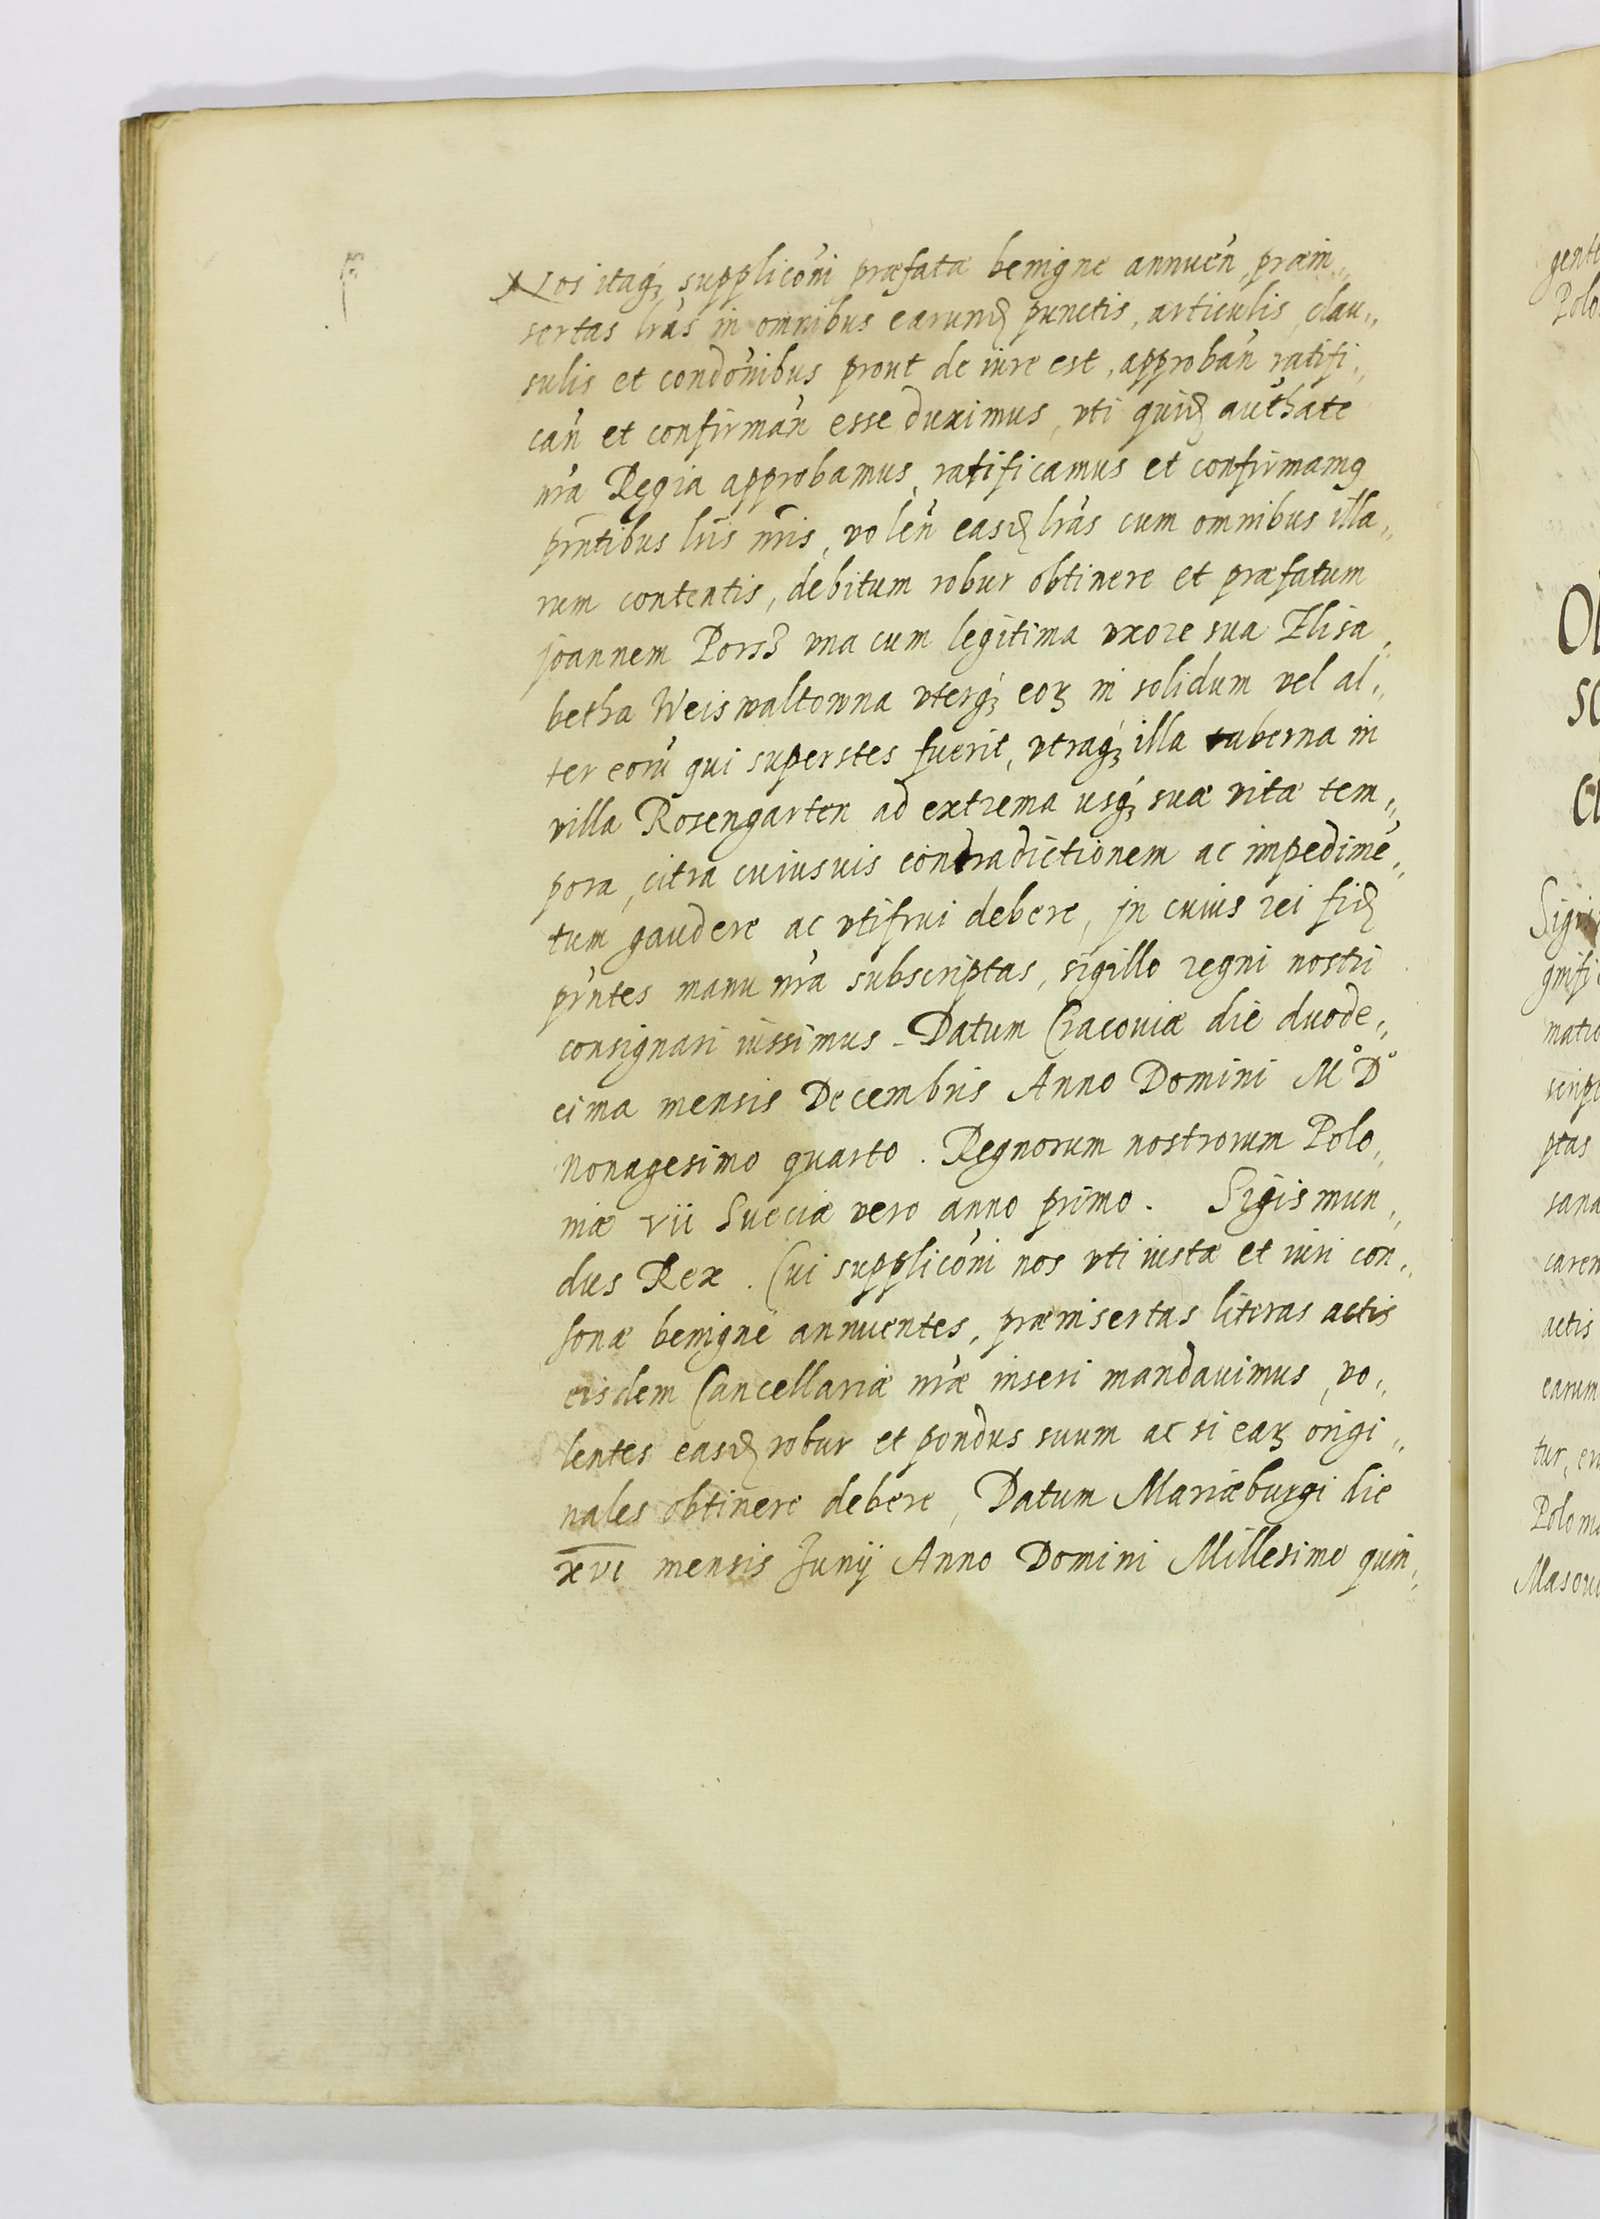 Nos itaq₃ suppliconi præfatæ benigne annuen, præin„
sertas lras in omnibus earund punctis, articulis, clau„
sulis et condonibus prout de iure est, approban ratifi„
can et confirman esse duximus, vti quid authate
nra Regia approbamus, ratificamus et confirmamq
prntibus lris nris, volen easd lras cum omnibus illa„
rum contentis, debitum robur obtinere et præfatum
joannem Porss vna cum legitima vxore sua Elisa„
betha Weiswaltowna vterq₃ eoꝝ in solidum vel al„
ter eorū qui superstes fuerit, vtraq₃ illa taberna in
villa Rosengarten ad extrema usq₃ suæ vitæ tem„
pora, citra cuiusuis contradictionem ac impedimē„
tum gaudere ac vtifrui debere, jn cuius rei fid
prntes manu nra subscriptas, sigillo regni nostri
consignari iussimus. Datum Cracouiæ die duode„
cima mensis Decembris Anno Domini M° D°
Nonagesimo quarto. Regnorum nostrorum Polo„
niæ vii Sueciæ vero anno primo. Sigismun„
dus Rex. Cui suppliconi nos vti iustæ et iuri con„
sonæ benigne annuentes, præinsertas literas actis
eisdem Cancellariæ nræ inseri mandauimus, vo„
lentes easd robur et pondus suum ac si eaꝝ origi„
nales obtinere debere, Datum Mariæburgi die
xvi mensis Junij Anno Domini Millesimo quin„
gent
Polo
Sigis
gnifi
matio
script
ptas
sana
caren
actis
earum
tur, en
Polon
Masoui